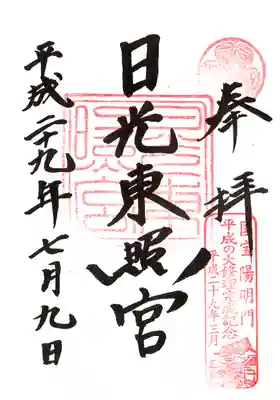 奉拝
国宝 陽明門
平成の大修理竣成記念
平成二十九年三月
日光東照宮
平成二十九年七月九日